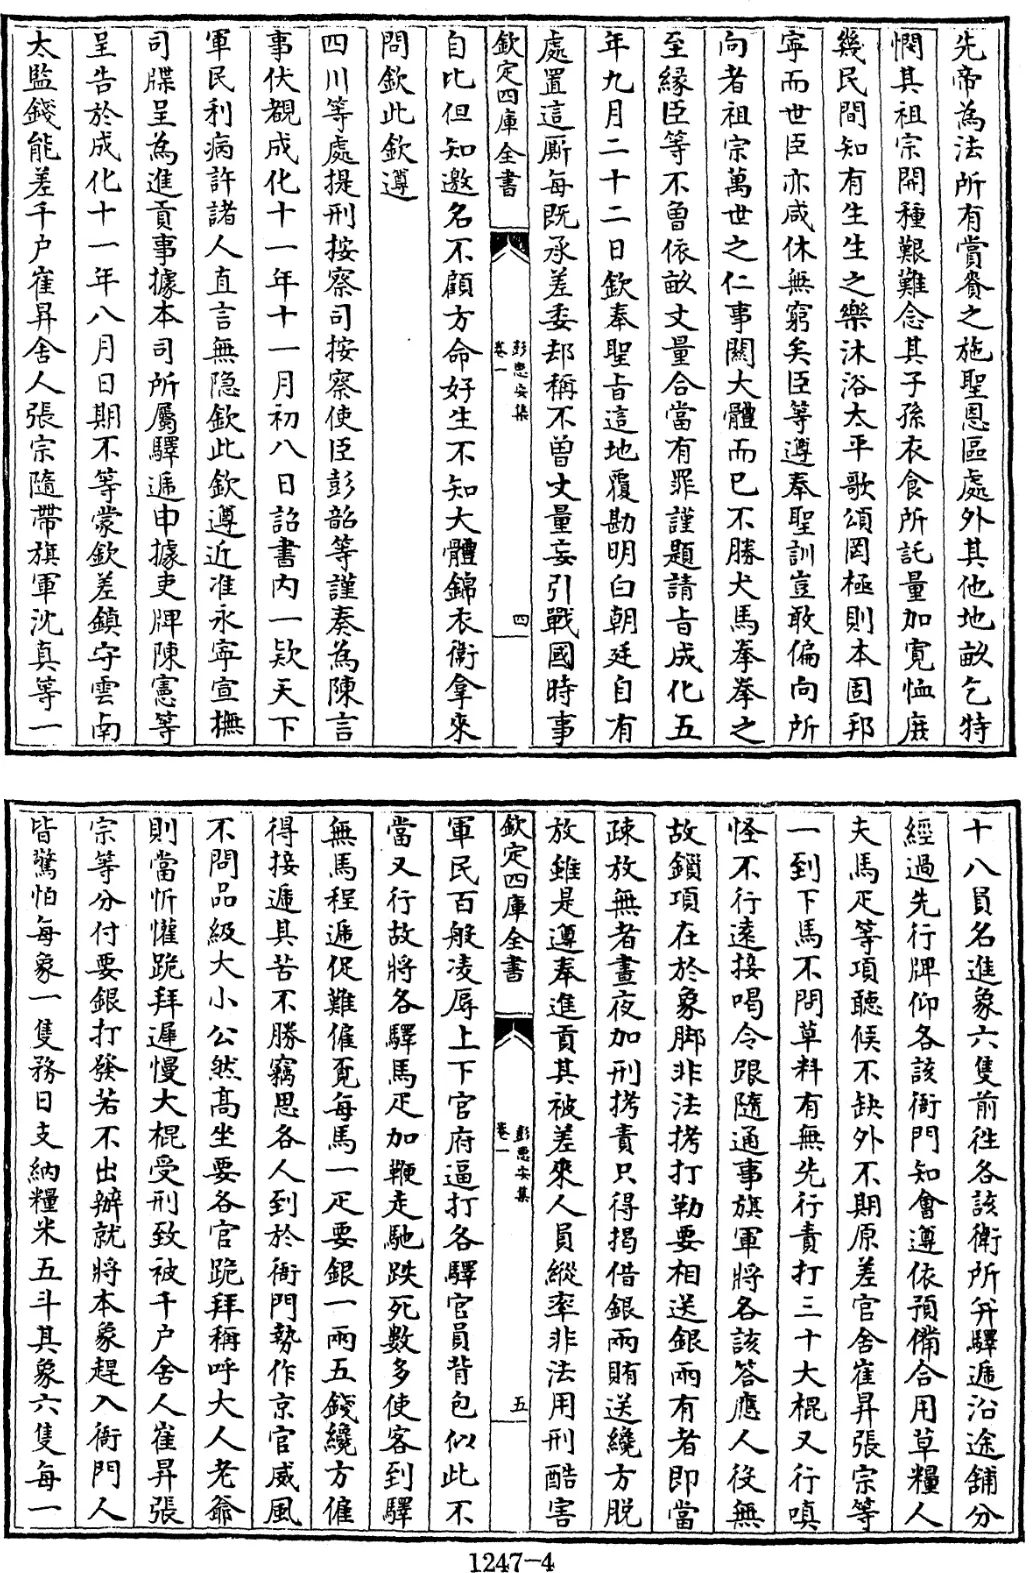 先帝為法所有賞賚之施聖恩區處外其他地畝乞特
憫其祖宗開種艱難念其子孫衣食所託量加寛恤庶
幾民間知有生生之樂沐浴太平歌頌罔極則本固邦
寧而世臣亦咸休無窮矣臣等遵奉聖訓豈敢偏向所
向者祖宗萬世之仁事關大體而已不勝犬馬拳拳之
至緣臣等不曾依畝丈量合當有罪謹題請旨成化五
年九月二十二日欽奉聖旨這地覆勘明白朝廷自有
處置這厮每既承差委却稱不曾丈量妄引戰國時事
欽定四庫全書
彭惠安集
卷一
四
自比但知邀名不顧方命好生不知大體錦衣衛拿來
問欽此欽遵
四川等處提刑按察司按察使臣彭韶等謹奏為陳言
事伏覩成化十一年十一月初八日詔書内一欵天下
軍民利病許諸人直言無隐欽此欽遵近准永寧宣撫
司牒呈為進貢事據本司所屬驛逓申據吏牌陳憲等
呈告於成化十一年八月日期不等蒙欽差鎮守雲南
太監錢能差千户崔昇舍人張宗隨帶旗軍沈真等一
十八員名進象六隻前徃各該衛所并驛逓沿途舖分
經過先行牌仰各該衙門知㑹遵依預備合用草糧人
夫馬疋等項聽候不缺外不期原差官舍崔昇張宗等
一到下馬不問草料有無先行責打三十大棍又行嗔
怪不行遠接喝令跟隨通事旗軍將各該答應人役無
故鎖項在於象脚非法拷打勒要相送銀兩有者即當
疎放無者晝夜加刑拷責只得揭借銀兩賄送纔方脱
放雖是遵奉進貢其被差來人員縱率非法用刑酷害
欽定四庫全書
彭惠安集
卷一
五
軍民百般凌辱上下官府逼打各驛官員背包似此不
當又行故將各驛馬疋加鞭走馳跌死數多使客到驛
無馬程逓促難僱覓每馬一疋要銀一兩五錢纔方僱
得接逓其苦不勝竊思各人到於衙門勢作京官威風
不問品級大小公然高坐要各官跪拜稱呼大人老爺
則當忻懽跪拜遲慢大棍受刑致被千户舍人崔昇張
宗等分付要銀打發若不出辦就將本象趕入衙門人
皆驚怕每象一隻務日支納糧米五斗其象六隻每一
1247-4